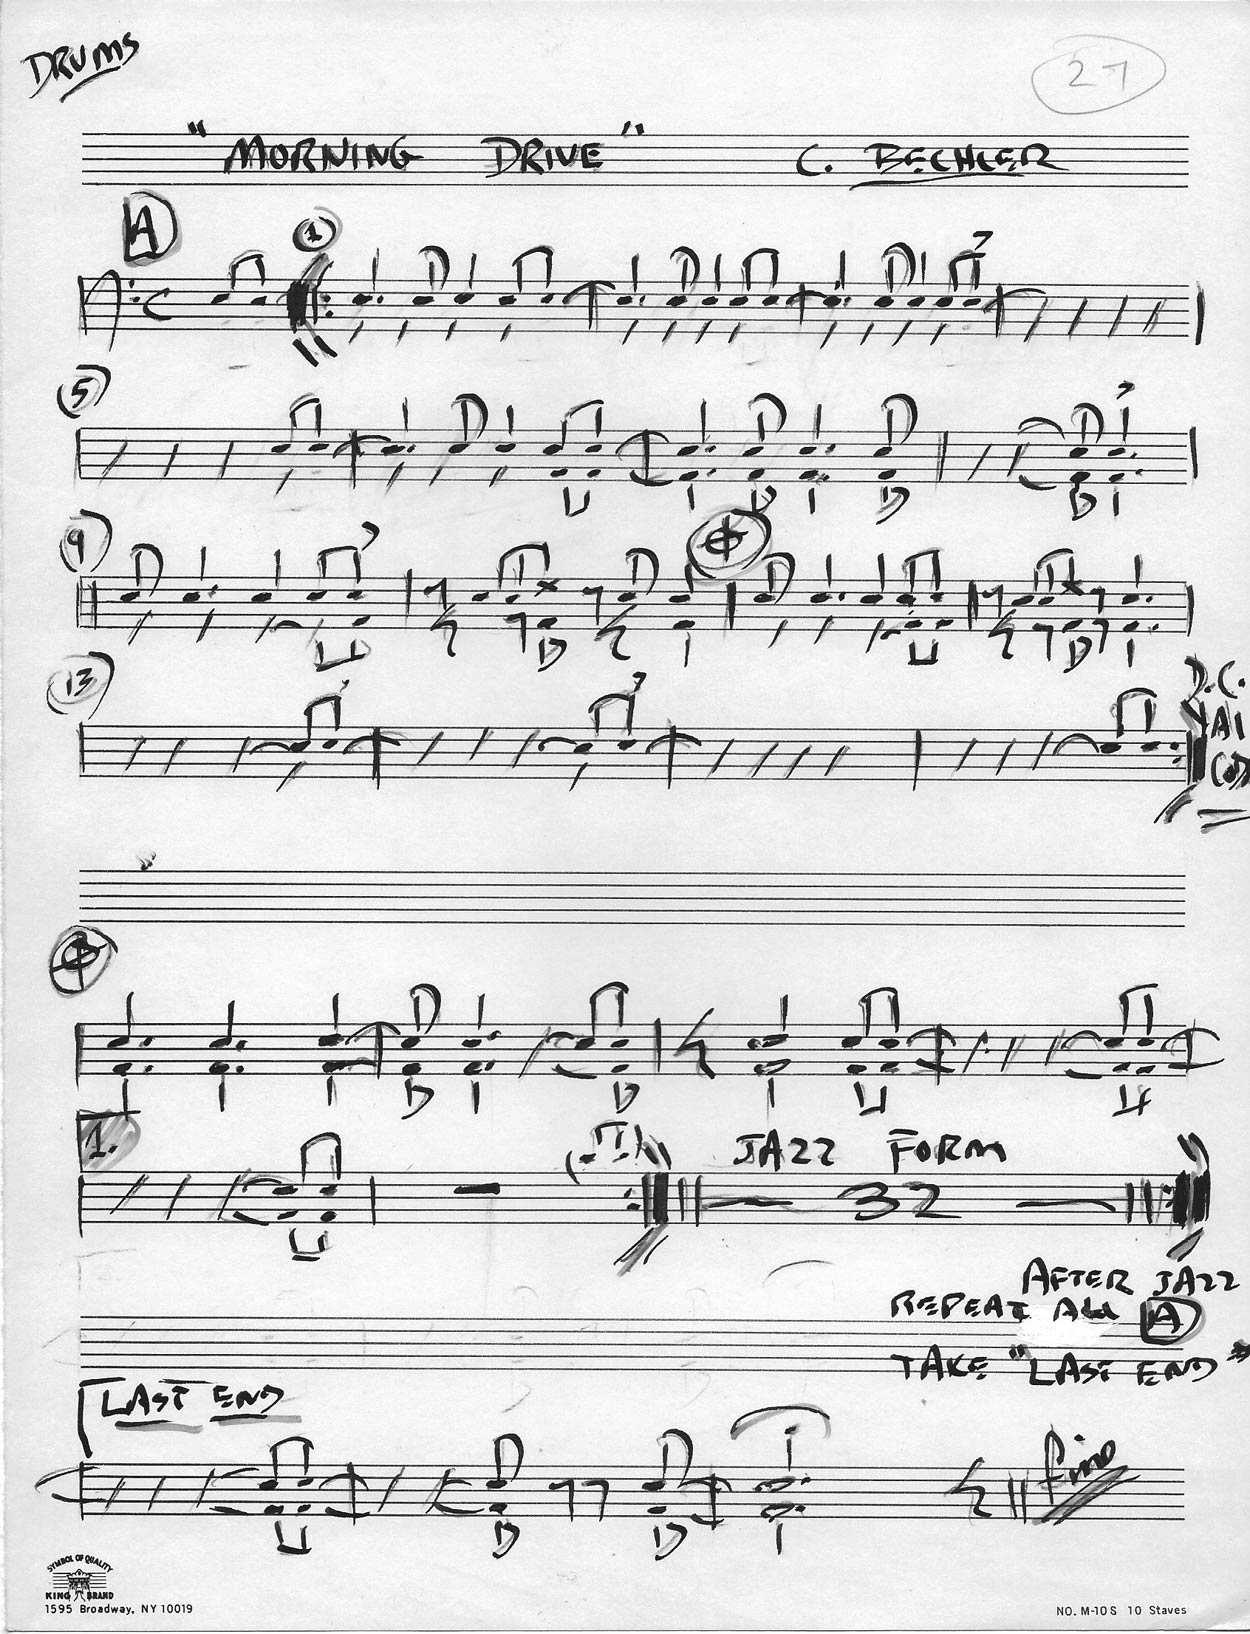 DRUMS
27
"MORNING DRIVE" C. BECHLER
A
1
5
9
13
D.C.
1.
JAZZ FORM
32
AFTER JAZZ
REPEAT ALL A
TAKE "LAST END"
LAST END
fine
SYMBOL OF QUALITY
KING BRAND
1595 Broadway, NY 10019
NO. M-10S 10 Staves